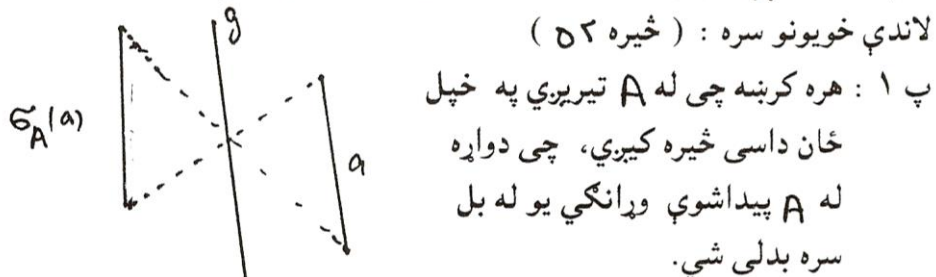 لاندې خویونو سره : ( څیره ۵۲ )
پ ۱ : هره کرښه چی له A تیریږي په خپل
ځان داسی څیره کیږي، چی دواړه
له A پیداشوې وړانګي یو له بل
سره بدلی شي.
g
σA(a)
a